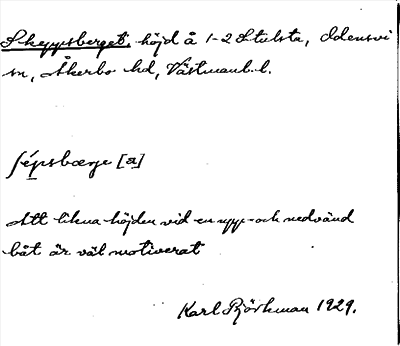 Skeppsberget, höjd å 1-2 Stulsta, Odensvi
sn, Åkerbo hd, Västmanl. l.
ʃépsbærje [a]
Att likna höjden vid en upp- och nedvänd
båt är väl motiverat
Karl Björkman 1929.